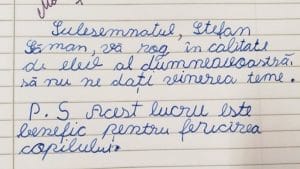 Subsemnatul, Ștefan
Șoman, vă rog în calitate
de elev al dumneavoastră,
să nu ne dați vinerea teme.
P. S Acest lucru este
benefic pentru fericirea
copilului.